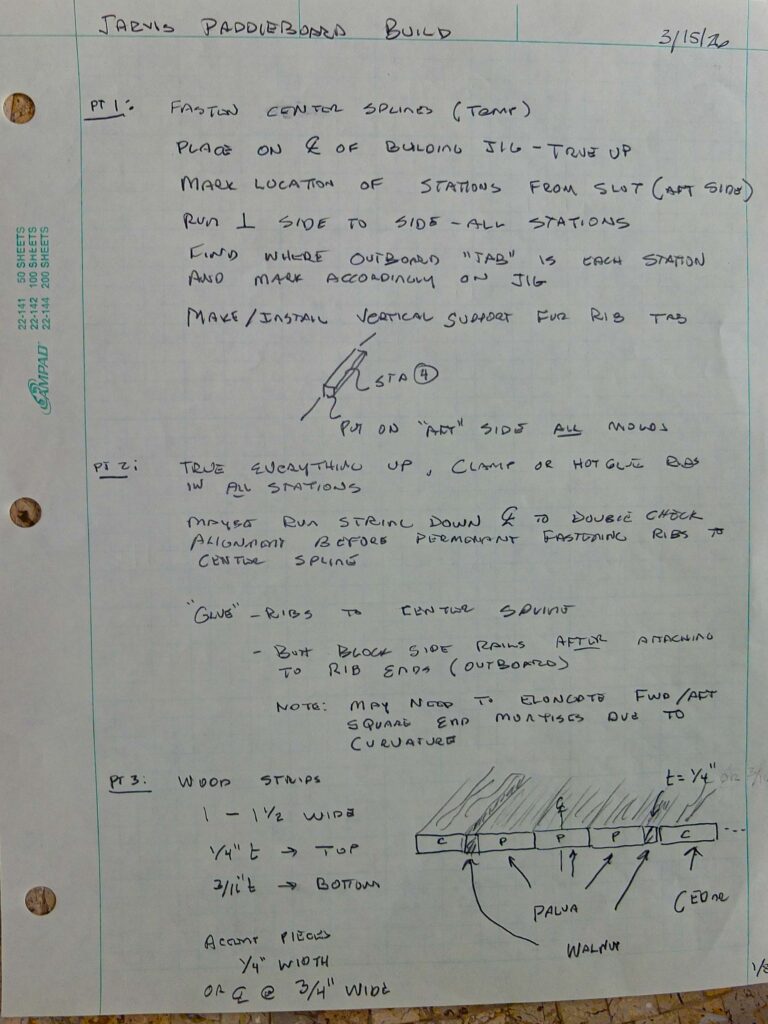 JARVIS PADDLEBOARD BUILD
3/15/26
PT 1: FASTEN CENTER SPLINES (TEMP)
PLACE ON ℄ OF BUILDING JIG - TRUE UP
MARK LOCATION OF STATIONS FROM SLOT (AFT SIDE)
RUN ⊥ SIDE TO SIDE - ALL STATIONS
FIND WHERE OUTBOARD "TAB" IS EACH STATION
AND MARK ACCORDINGLY ON JIG
MAKE/INSTALL VERTICAL SUPPORT FUR RIB TAB
STA 4
PUT ON "AFT" SIDE ALL MOLDS
PT 2: TRUE EVERYTHING UP, CLAMP OR HOT GLUE RIBS
IN ALL STATIONS
MAYBE RUN STRING DOWN ℄ TO DOUBLE CHECK
ALIGNMENT BEFORE PERMENANT FASTENING RIBS TO
CENTER SPLINE
"GLUE" - RIBS TO CENTER SPLINE
- BUTT BLOCK SIDE RAILS AFTER ATTACHING
TO RIB ENDS (OUTBOARD)
NOTE: MAY NEED TO ELONGATE FWD/AFT
SQUARE END MORTISES DUE TO
CURVATURE
PT 3: WOOD STRIPS
1 - 1 1/2 WIDE
1/4" t → TOP
3/16" t → BOTTOM
ACCENT PIECES
1/4" WIDTH
OR ℄ @ 3/4" WIDE
t = 1/4"
℄
C P P P C
CEDAR
WALNUT
22-141 50 SHEETS
22-142 100 SHEETS
22-144 200 SHEETS
AMPAD